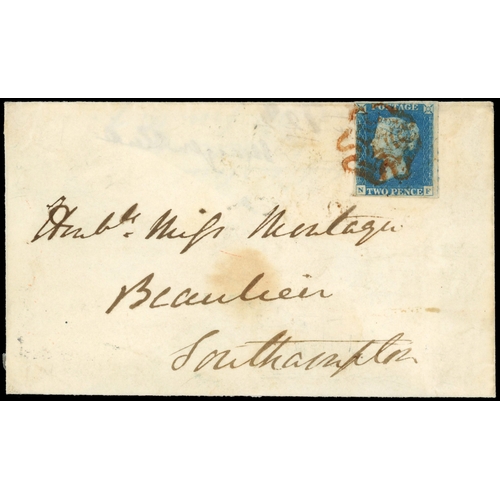 POSTAGE
TWO PENCE
N
Honble. Miss Montagu
Beaulieu
Southampton